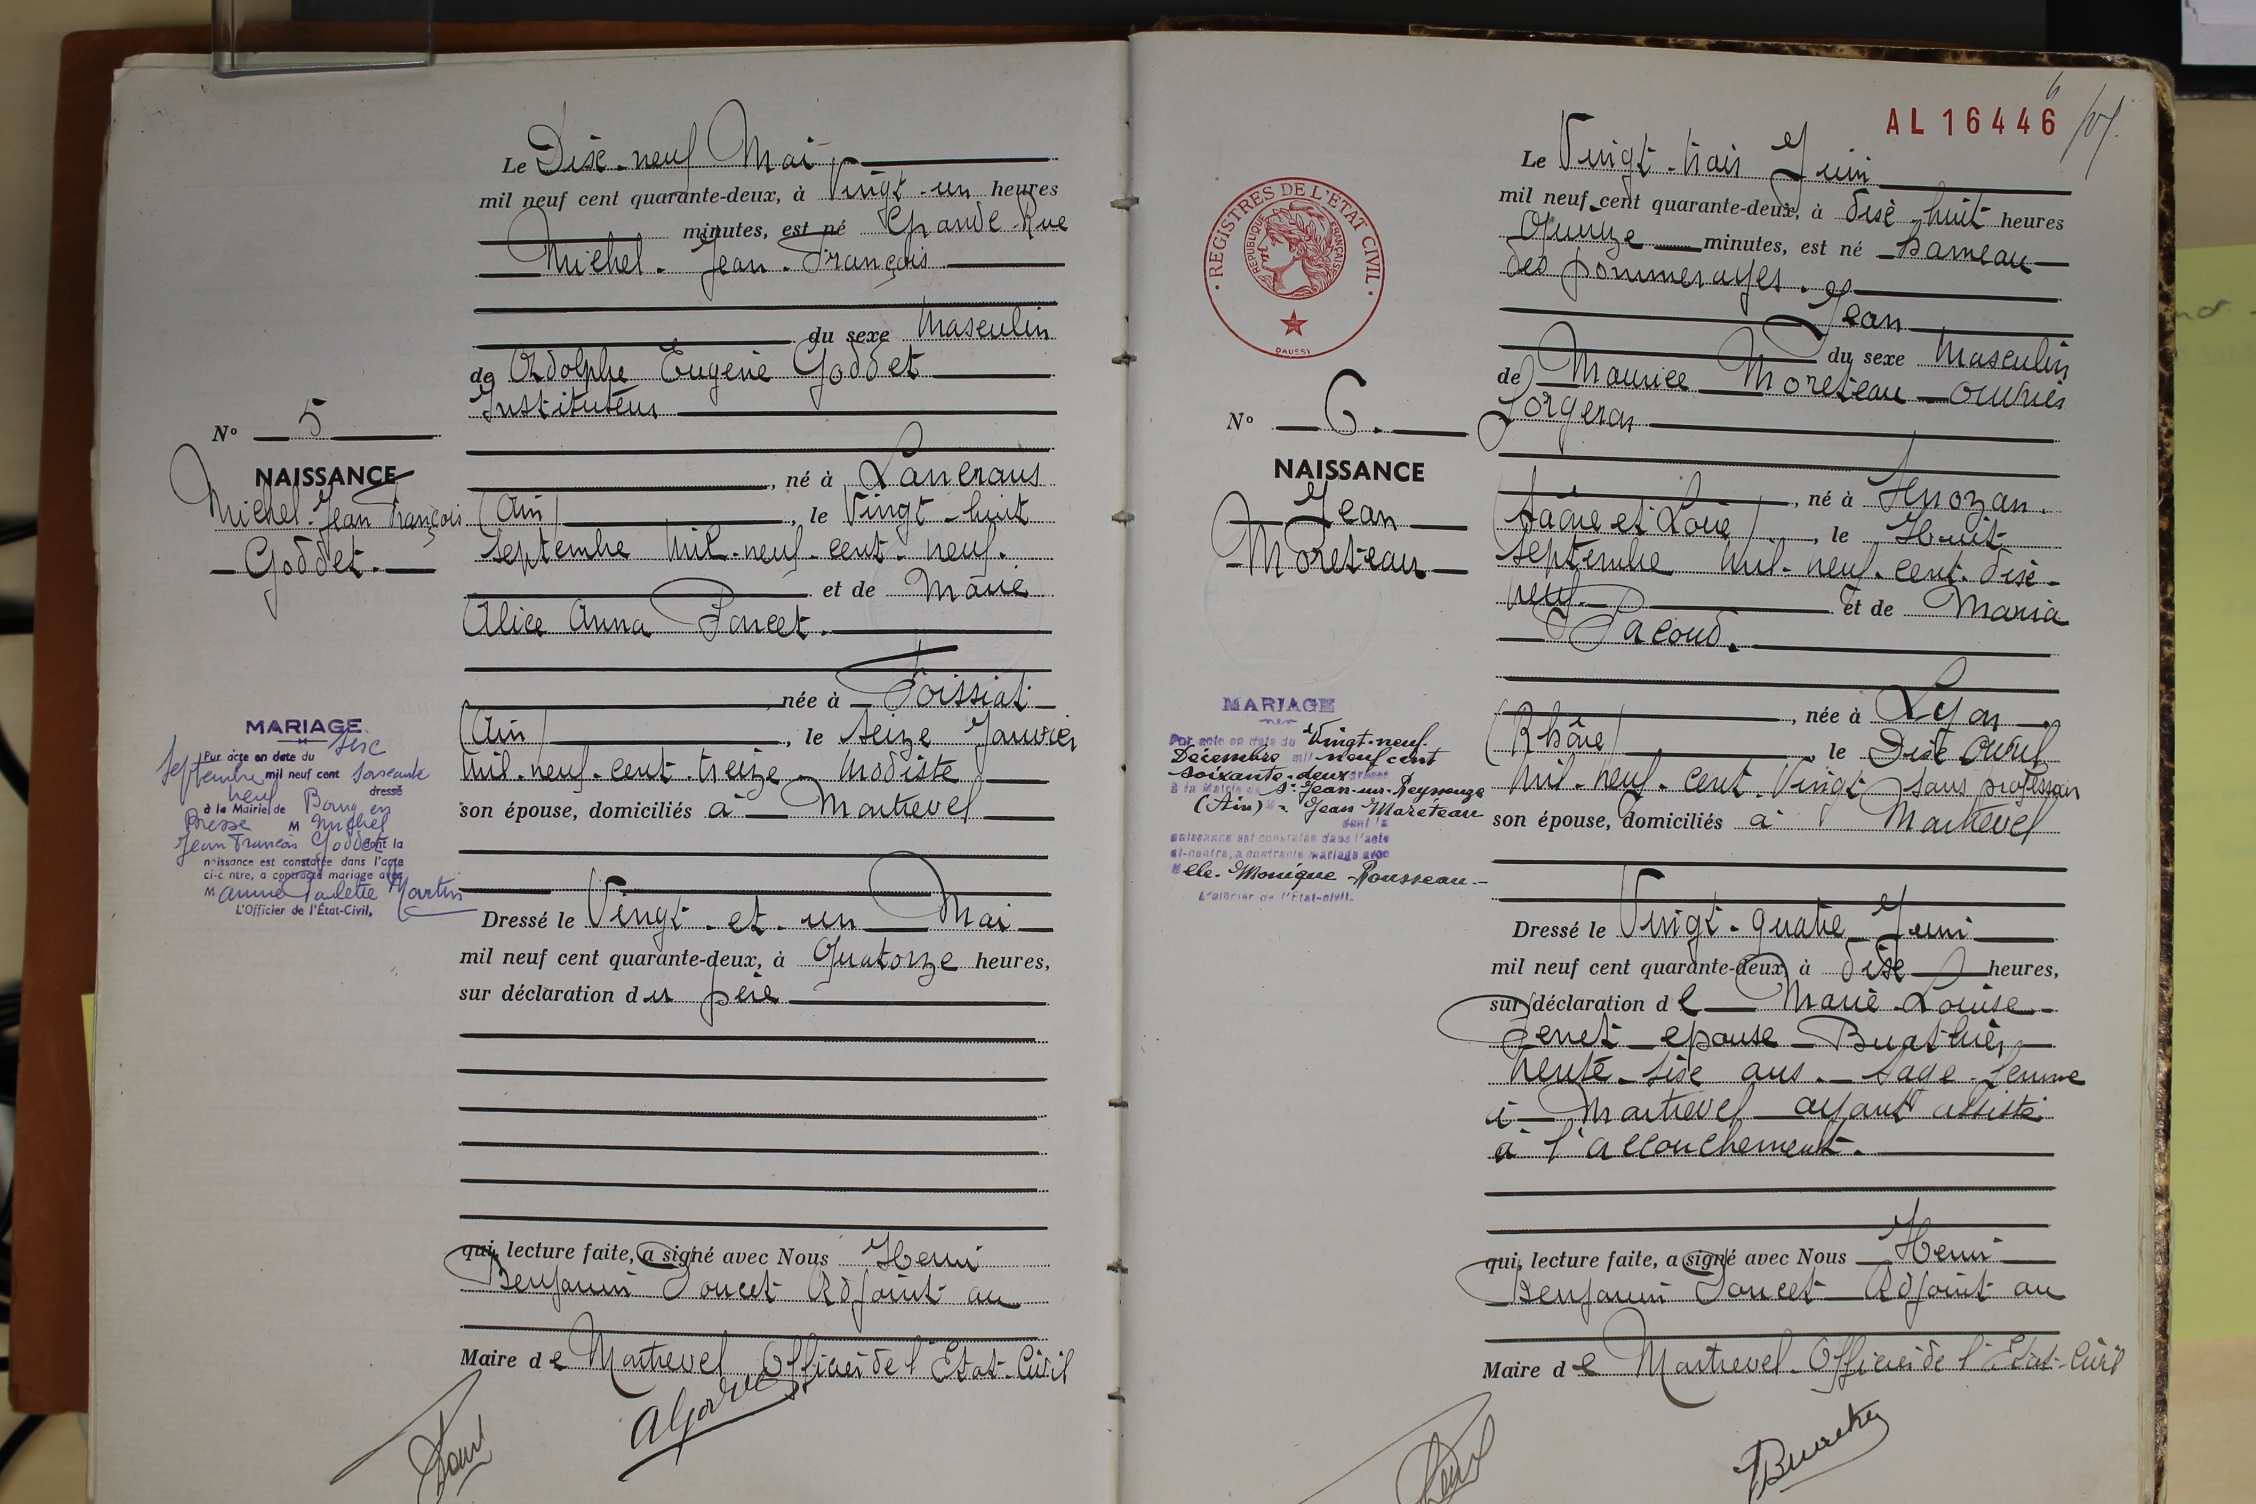 Le Dix-neuf Mai
mil neuf cent quarante-deux, à Vingt-un heures
minutes, est né Grande-Rue
Michel-Jean-François
du sexe Masculin
de Adolphe Eugène Goddet
Instituteur
N° 5
NAISSANCE
Michel-Jean François
Goddet.
, né à
(Ain) , le Vingt-huit
septembre mil-neuf-cent-neuf.
et de Marie
Alice Anna Poncet.
née à Foissiat
(Ain) , le Seize Janvier
mil-neuf-cent-treize - modiste
son épouse, domiciliés à Montrevel
MARIAGE
Par acte en date du Seize
Septembre mil neuf cent soixante
neuf dressé
à la Mairie de Bourg en
Bresse M Michel
Jean François Goddet dont la
naissance est constatée dans l'acte
ci-c ntre, a contracté mariage avec
M Martin
L'Officier de l'État-Civil,
Dressé le Vingt-et-un Mai
mil neuf cent quarante-deux, à Quatorze heures,
sur déclaration du père
qui, lecture faite, a signé avec Nous Henri
Benjamin Poncet Adjoint au
Maire de Montrevel Officier de l'Etat-Civil
6
AL 16446
Le Vingt-trois Juin
mil neuf cent quarante-deux, à dix-huit heures
Quinze minutes, est né hameau
des pommerayes.
Jean
du sexe Masculin
de Maurice Moreteau - ouvrier
forgeron
REGISTRES DE L'ÉTAT CIVIL
RÉPUBLIQUE FRANÇAISE
DAUSSY
N° 6.
NAISSANCE
Jean
Moreteau
, né à Senozan.
(Saône et Loire) , le Huit
septembre mil-neuf-cent-dix-
neuf. et de Maria
Pacoud.
, née à Lyon
(Rhône) le Dix Avril
mil-neuf-cent-vingt sans profession
son épouse, domiciliés à Montrevel
MARIAGE
Par acte en date du Vingt-neuf
Décembre mil neuf cent
soixante-deux dressé
à la Mairie de St Jean-sur-Reyssouze
(Ain) M. Jean Moréteau
dont la
naissance est constatée dans l'acte
ci-contre, a contracté mariage avec
Melle Monique Rousseau.-
L'Officier de l'État-civil.
Dressé le Vingt-quatre Juin
mil neuf cent quarante-deux, à dix heures,
sur déclaration de Marie-Louise
épouse Buathier
trente-six ans.- sage-femme
à Montrevel ayant assisté
à l'accouchement.
qui, lecture faite, a signé avec Nous Henri
Benjamin Poncet Adjoint au
Maire de Montrevel-Officier de l'Etat-Civil